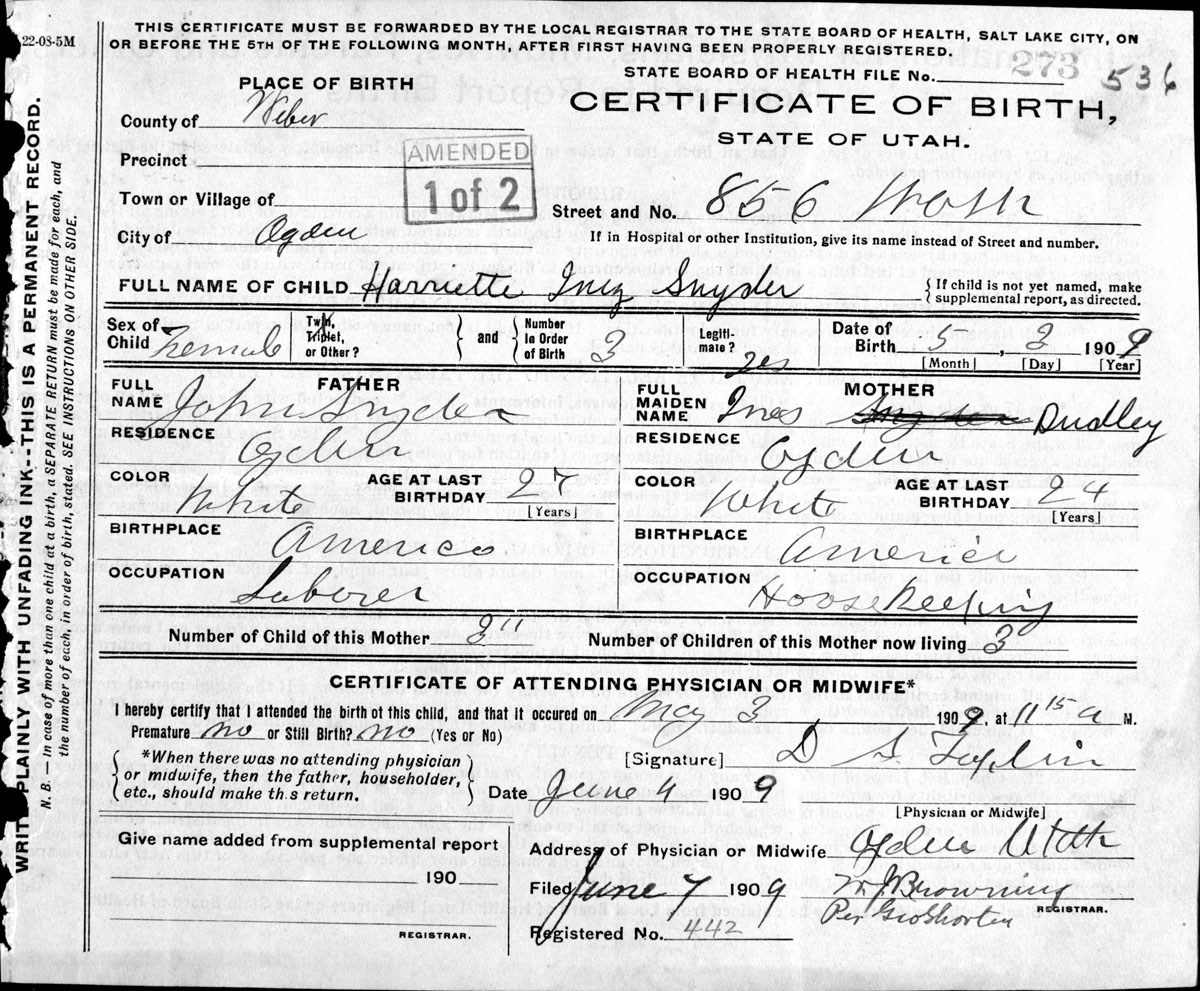 22-08-5M
THIS CERTIFICATE MUST BE FORWARDED BY THE LOCAL REGISTRAR TO THE STATE BOARD OF HEALTH, SALT LAKE CITY, ON
OR BEFORE THE 5TH OF THE FOLLOWING MONTH, AFTER FIRST HAVING BEEN PROPERLY REGISTERED.
STATE BOARD OF HEALTH FILE No. 273 536
PLACE OF BIRTH
CERTIFICATE OF BIRTH,
STATE OF UTAH.
County of Weber
Precinct
AMENDED
1 of 2
Town or Village of
Street and No. 856
City of Ogden
If in Hospital or other Institution, give its name instead of Street and number.
FULL NAME OF CHILD Harriette Inez Snyder
{ If child is not yet named, make
supplemental report, as directed.
Sex of Child Female
Twin, Triplet, or Other?
and
Number in Order of Birth 3
Legitimate? yes
Date of Birth 5, 3 1909
[Month] [Day] [Year]
FATHER
FULL NAME John Snyder
RESIDENCE Ogden
COLOR White
AGE AT LAST BIRTHDAY 27
[Years]
BIRTHPLACE America
OCCUPATION Laborer
MOTHER
FULL MAIDEN NAME Ines Snyder Dudley
RESIDENCE Ogden
COLOR White
AGE AT LAST BIRTHDAY 24
[Years]
BIRTHPLACE America
OCCUPATION Housekeeping
Number of Child of this Mother 3"
Number of Children of this Mother now living 3
CERTIFICATE OF ATTENDING PHYSICIAN OR MIDWIFE*
I hereby certify that I attended the birth of this child, and that it occured on May 3 1909, at 11 15 a M.
Premature no or Still Birth? no (Yes or No)
*When there was no attending physician
or midwife, then the father, householder,
etc., should make th.s return.
[Signature] D S
Date June 9 1909
[Physician or Midwife]
Give name added from supplemental report
190
REGISTRAR.
Address of Physician or Midwife Ogden Utah
Filed June 7 1909
W J Browning
Per Geo Shorten
REGISTRAR.
Registered No. 442
WRITE PLAINLY WITH UNFADING INK--THIS IS A PERMANENT RECORD.
N. B. — In case of more than one child at a birth, a SEPARATE RETURN must be made for each, and
the number of each, in order of birth, stated. SEE INSTRUCTIONS ON OTHER SIDE.